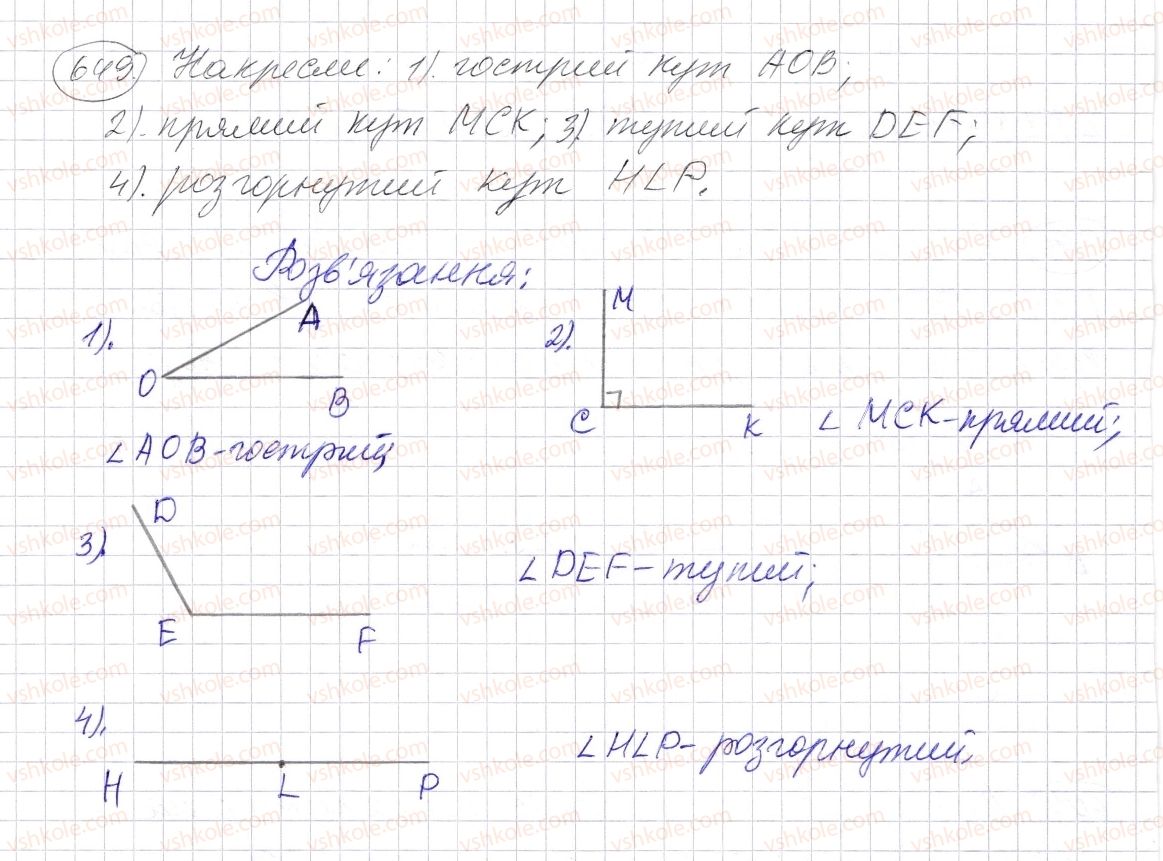 649. Накресли: 1). гострий кут AOB;
2). прямий кут MCK; 3). тупий кут DEF;
4). розгорнутий кут HLP.
Розв'язання:
1).
A
O
B
∠AOB-гострий
2).
M
C
K
∠MCK-прямий;
3).
D
E
F
∠DEF-тупий;
4).
H
L
P
∠HLP-розгорнутий.
vshkole.com